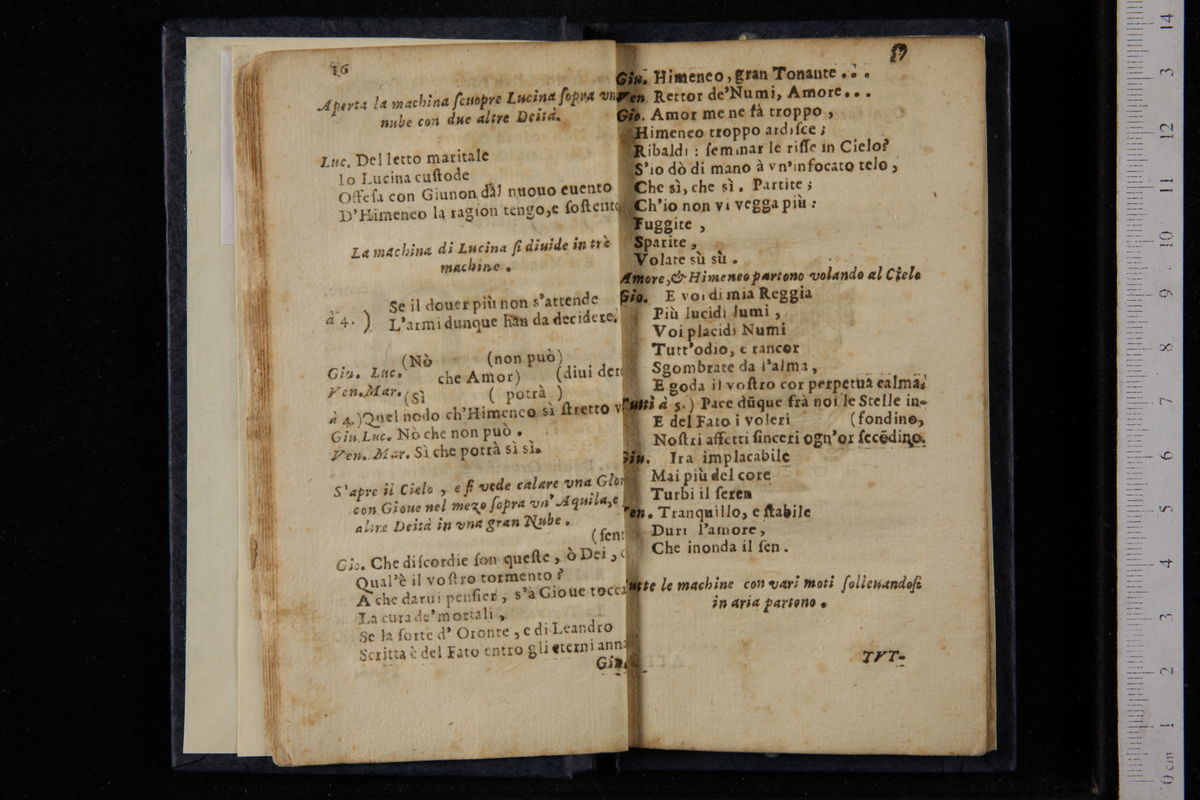 16
Aperta la machina ſcuopre Lucina ſopra vn
nube con due altre Deità.
Luc. Del letto maritale
Io Lucina cuſtode
Offeſa con Giunon dàl nuouo euento
D'Himeneo la ragion tengo, e ſoſtento
La machina di Lucina ſi diuide in trè
machine.
Se il douer più non s'attende
à 4. ) L'armi dunque han da decidere.
(Nò (non può)
Giu. Luc. che Amor) (diui der
Ven. Mar. (Sì ( potrà )
à 4.) Quel nodo ch'Himeneo sì ſtretto v
Giu. Luc. Nò che non può.
Ven. Mar. Sì che potrà sì sì.
S'apre il Cielo, e ſi vede calare vna Glor
con Gioue nel mezo ſopra vn' Aquila, e
altre Deità in vna gran Nube.
(ſent
Gio. Che diſcordie ſon queſte, ò Dei,
Qual'è il voſtro tormento?
A che darui penſier, s'à Gioue tocca
La cura de' mortali,
Se la ſorte d' Oronte, e di Leandro
Scritta è del Fato entro gli eterni ann
Giu.
17
Giu. Himeneo, gran Tonante...
Ven. Rettor de' Numi, Amore...
Gio. Amor me ne fà troppo,
Himeneo troppo ardiſce;
Ribaldi: ſeminar le riſſe in Cielo?
S'io dò di mano à vn'infocato telo,
Che sì, che sì. Partite;
Ch'io non vi vegga più:
Fuggite,
Sparite,
Volate sù sù.
Amore, & Himeneo partono volando al Cielo
Gio. E voi di mia Reggia
Più lucidi lumi,
Voi placidi Numi
Tutt'odio, e rancor
Sgombrate da l'alma,
E goda il voſtro cor perpetua calma.
Tutti à 5.) Pace dūque frà noi le Stelle in-
E del Fato i voleri (fondino,
Noſtri affetti ſinceri ogn'or ſecōdino.
Giu. Ira implacabile
Mai più del core
Turbi il ſeren
Ven. Tranquillo, e ſtabile
Duri l'amore,
Che inonda il ſen.
Tutte le machine con vari moti ſolleuandoſi
in aria partono.
TVT-